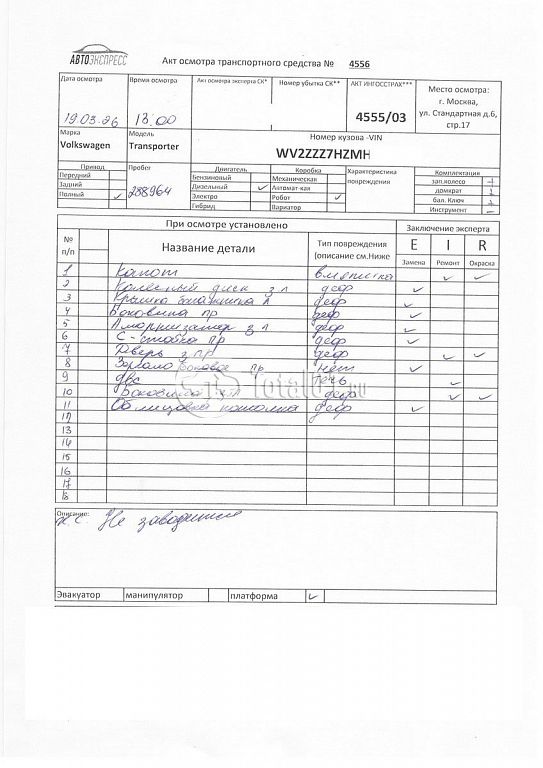 АВТОЭКСПРЕСС
Акт осмотра транспортного средства № 4556
Дата осмотра Время осмотра Акт осмотра эксперта СК* Номер убытка СК** АКТ ИНГОССТРАХ*** Место осмотра:
г. Москва,
ул. Стандартная д.6,
стр.17
19.03.26 18:00 4555/03
Марка Модель Номер кузова -VIN
Volkswagen Transporter WV2ZZZ7HZMH
Привод Пробег Двигатель Коробка Характеристика повреждения Комплектация
Передний Бензиновый Механическая зап.колесо
Задний 288964 Дизельный ✓ Автомат-кая домкрат
Полный ✓ Электро Робот ✓ бал. Ключ
Гибрид Вариатор Инструмент
При осмотре установлено Заключение эксперта
№ п/п Название детали Тип повреждения (описание см.Ниже E I R
Замена Ремонт Окраска
1 Капот вмятина ✓ ✓
2 Колесный диск з л деф ✓
3 Крышка багажника деф ✓
4 Боковина пр деф ✓
5 Амортизатор з л деф ✓
6 С-стойка пр деф ✓
7 Дверь з пр деф ✓ ✓
8 Зеркало боковое пр нет ✓
9 двс течь ✓
10 Боковина деф ✓ ✓
11 Облицовка потолка деф ✓
12
13
14
15
16
17
18
Total01.RU
Описание:
Не заводится
Эвакуатор манипулятор платформа ✓